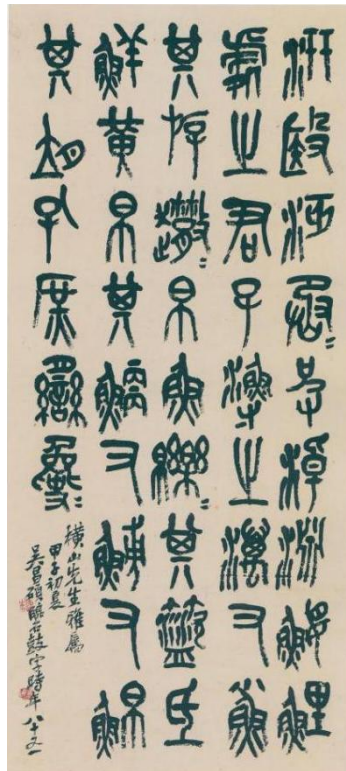 汧殹沔沔丞皮淖淵鰋鯉
處之君子漁之澫又鯊
其斿趣趣帛魚皪皪其籃氐
鮮黃帛其鯿又鯆又鮊
其孔庶臠之夐夐
橫山先生雅屬
甲子初夏
吳昌碩臨石鼓字時年八十又一